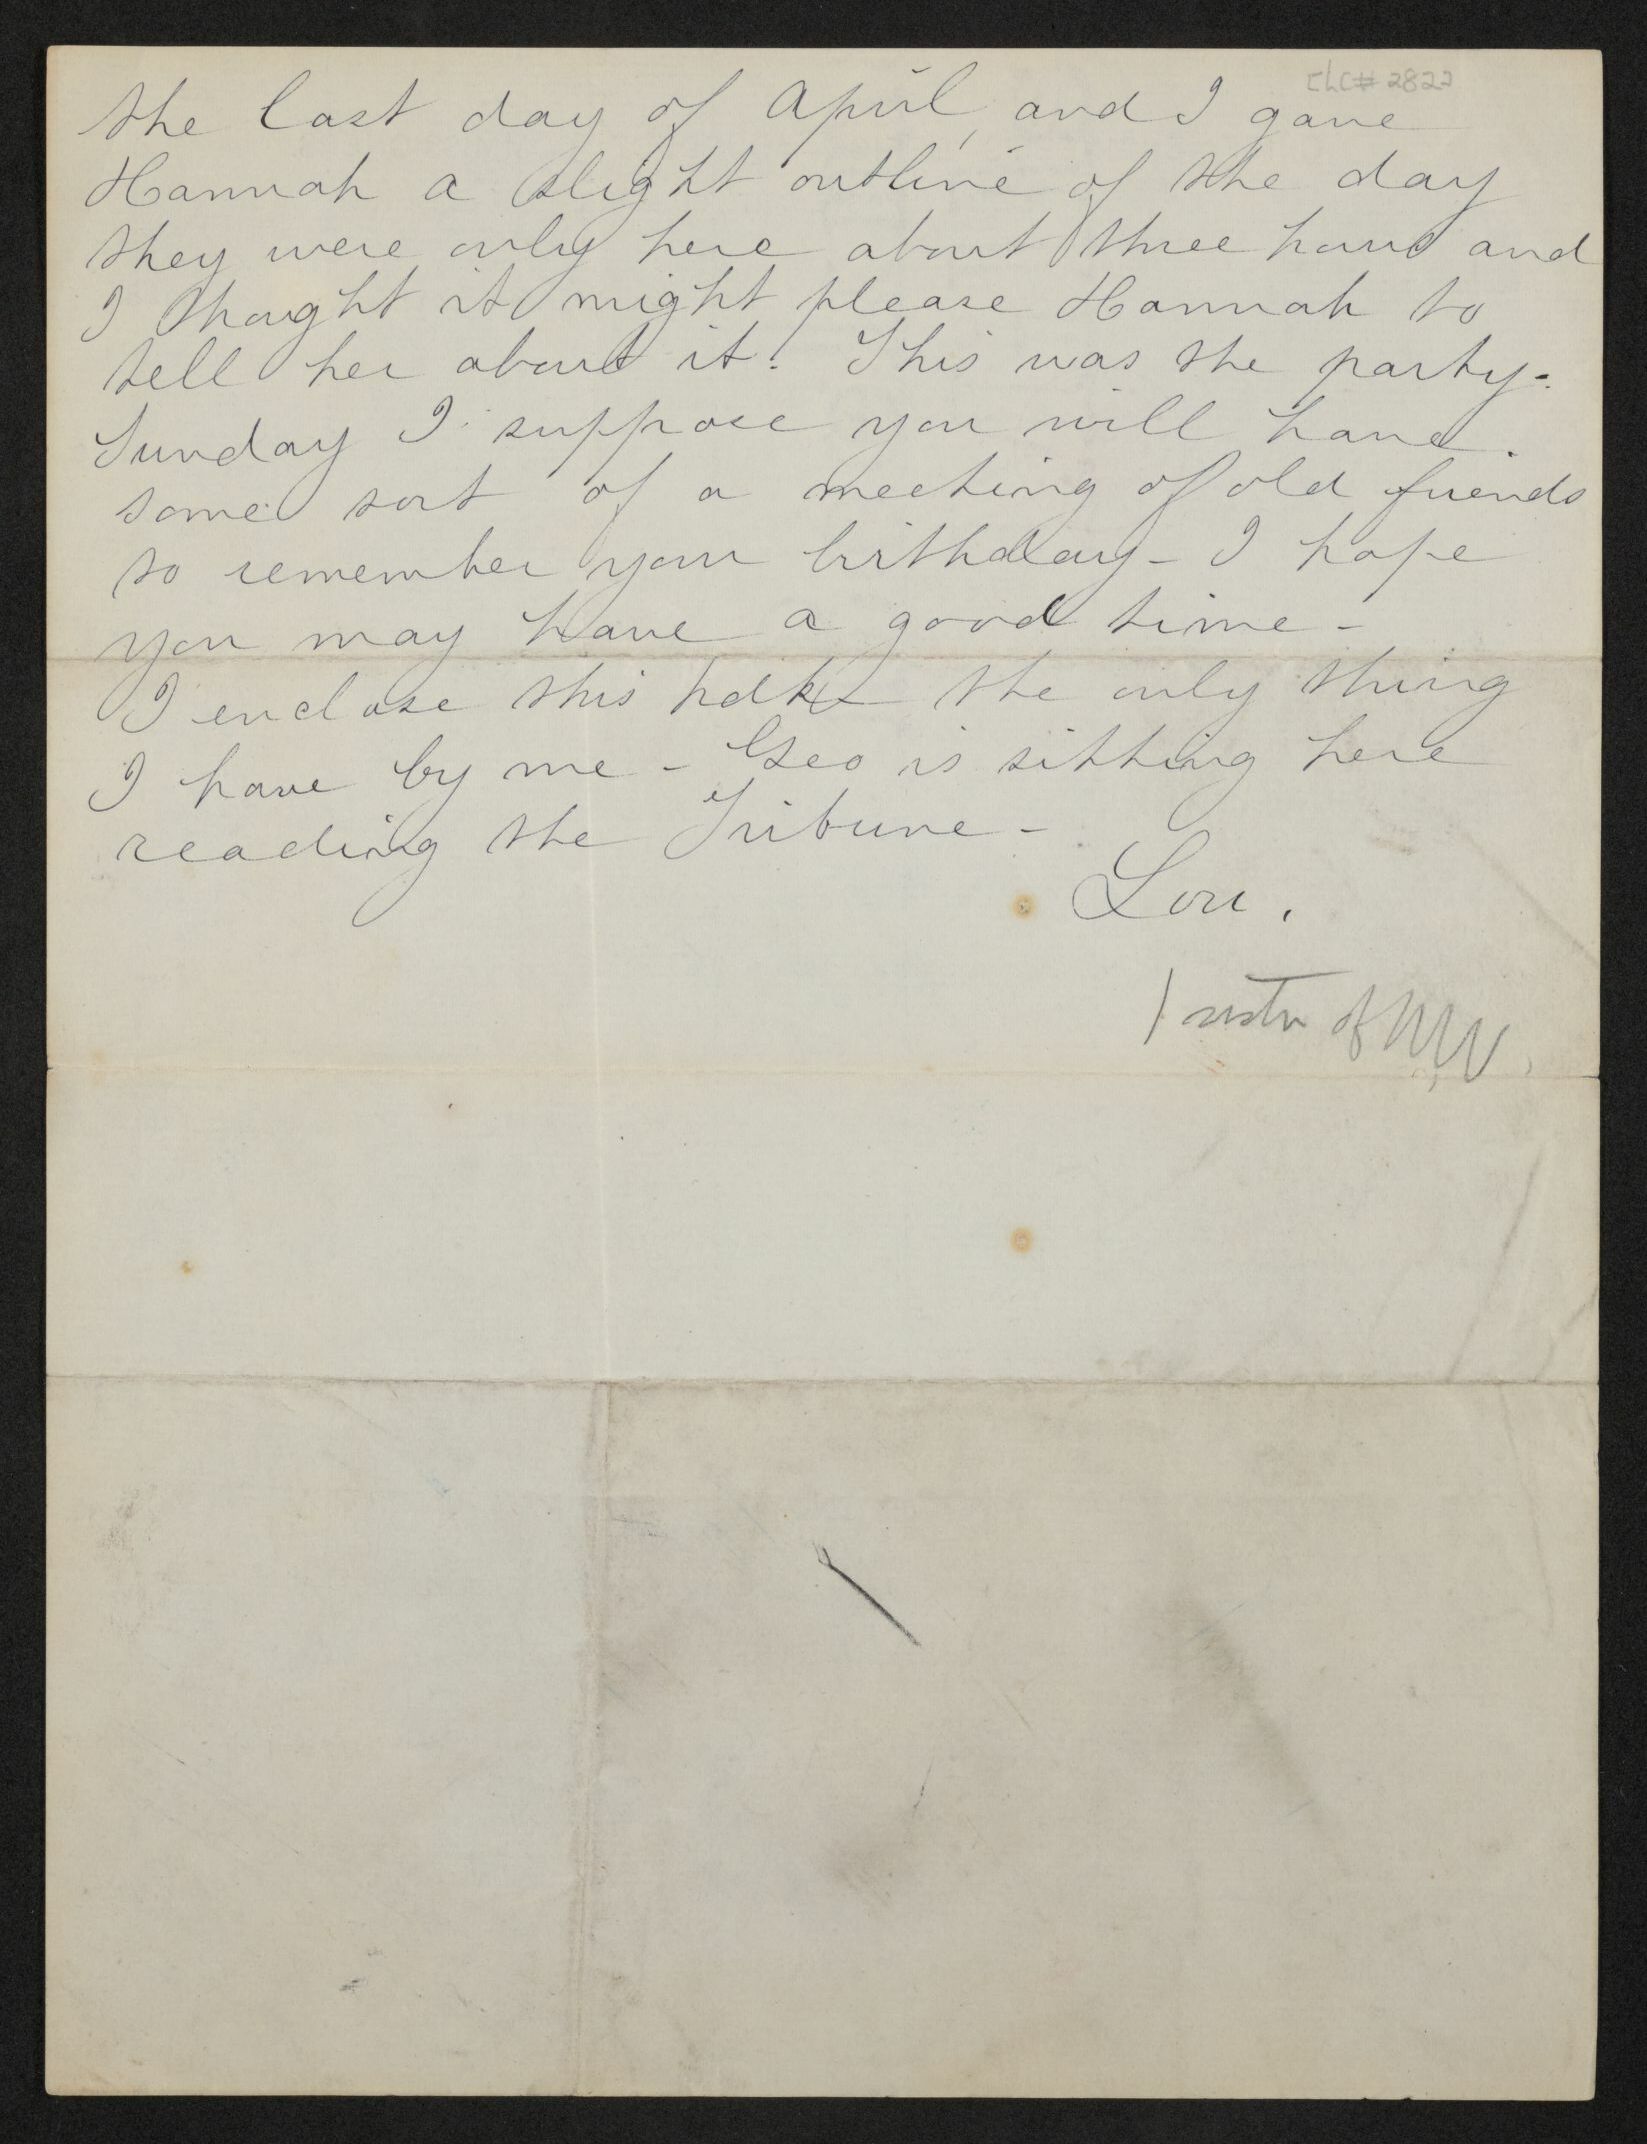 CLC# 2822
the last day of April, and I gave
Hannah a slight outline of the day
they were only here about three hours and
I thought it might please Hannah to
tell her about it. This was the party -
Sunday I suppose you will have
some sort of a meeting of old friends
to remember your birthday - I hope
you may have a good time -
I enclose this hdkf the only thing
I have by me - Geo is sitting here
reading the Tribune -
Lou.
sister of